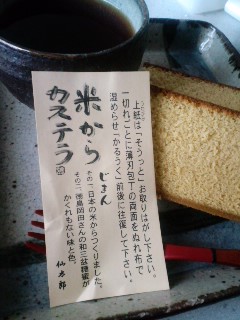 上紙は「そうっと」お取りはがし下さい。
一切れごとに薄刃包丁の両面をぬれ布で
温めらせ「かるうく」前後に往復して下さい。
米から
カステラ
じまん
その一、日本の米からつくりました。
その二、徳島岡田さんの和三盆糖蜜が
かくれもない味と色。
仙太郎